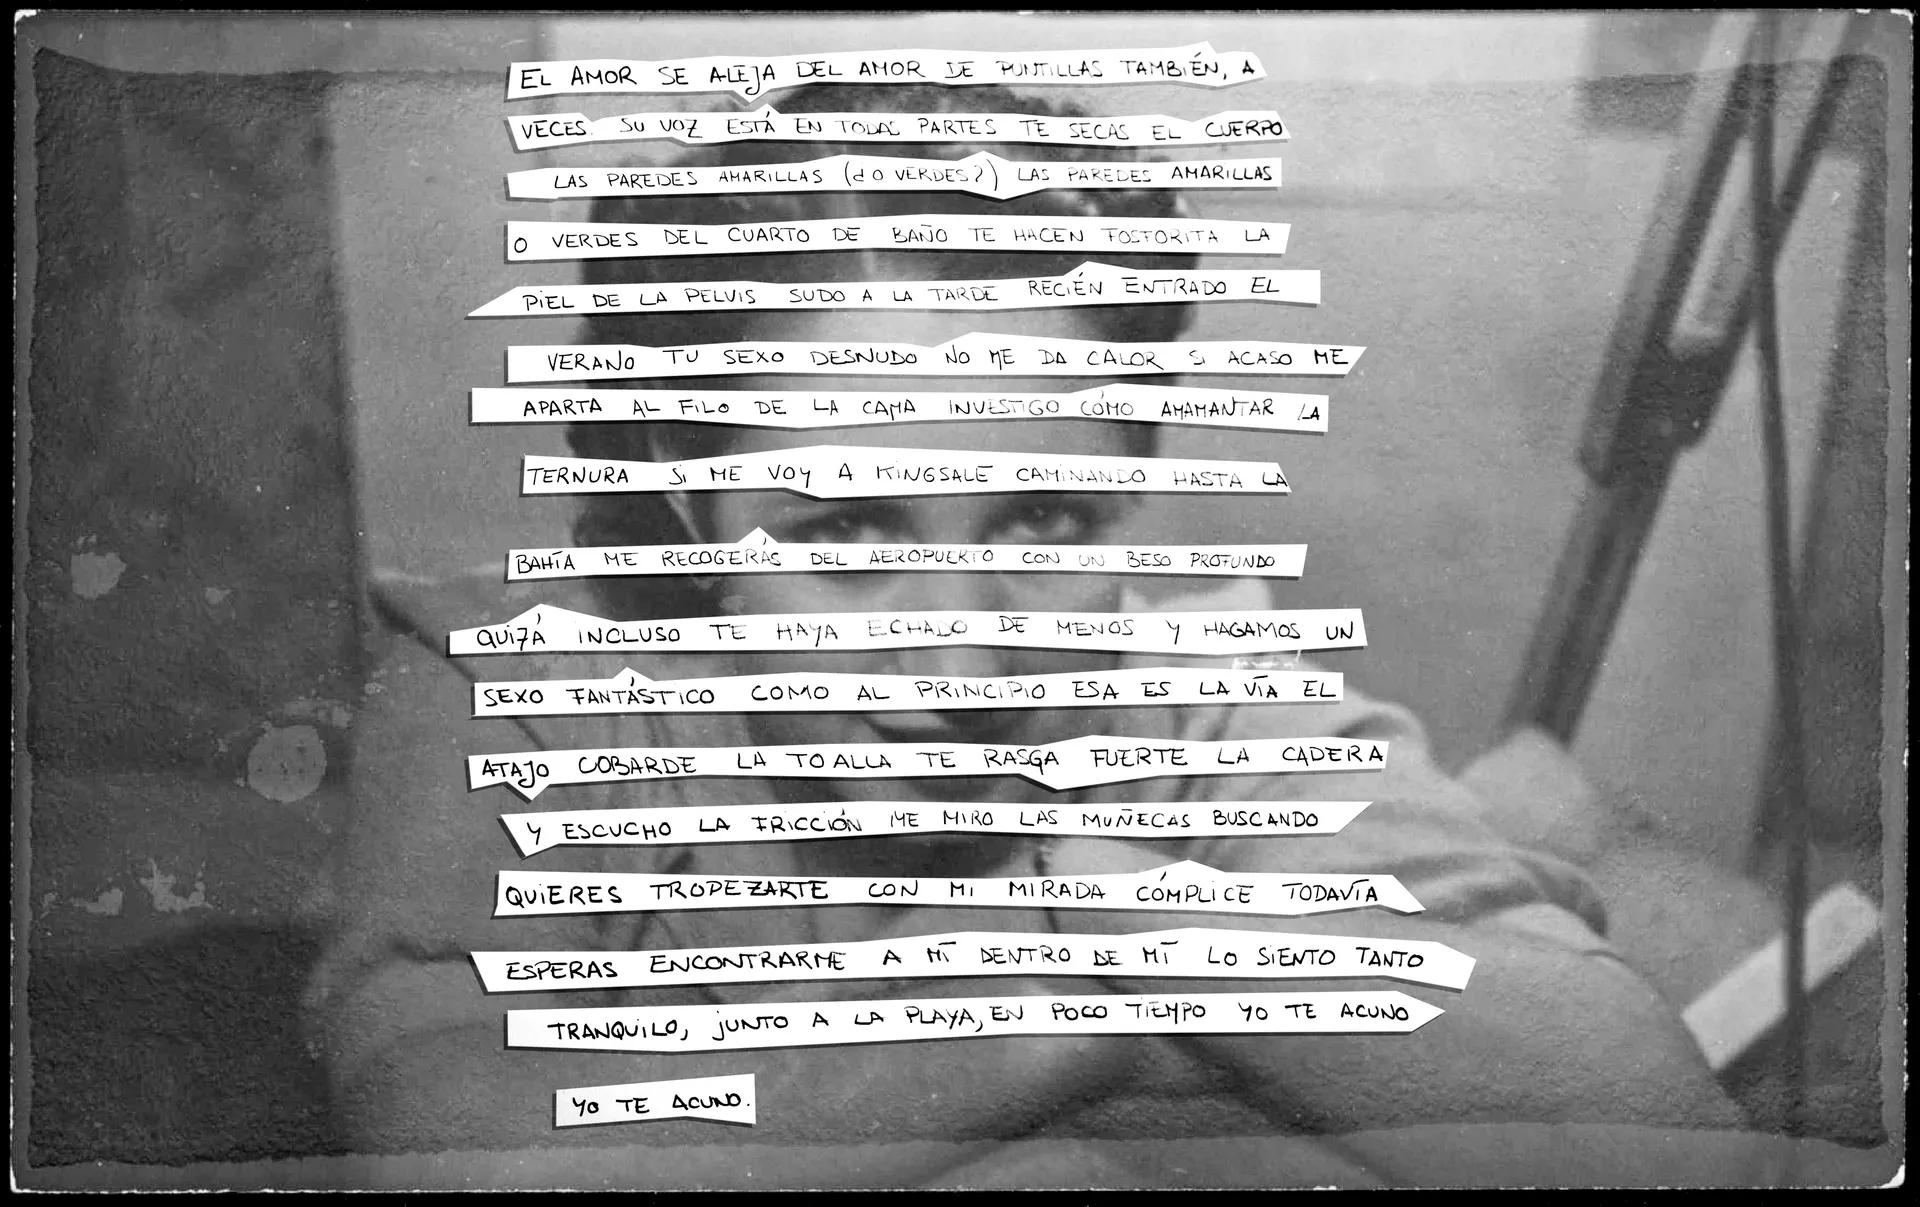 EL AMOR SE ALEJA DEL AMOR DE PUNTILLAS TAMBIÉN, A
VECES. SU VOZ ESTÁ EN TODAS PARTES TE SECAS EL CUERPO
LAS PAREDES AMARILLAS (¿O VERDES?) LAS PAREDES AMARILLAS
O VERDES DEL CUARTO DE BAÑO TE HACEN FOSFORITA LA
PIEL DE LA PELVIS SUDO A LA TARDE RECIÉN ENTRADO EL
VERANO TU SEXO DESNUDO NO ME DA CALOR SI ACASO ME
APARTA AL FILO DE LA CAMA INVESTIGO CÓMO AMAMANTAR LA
TERNURA SI ME VOY A KINGSALE CAMINANDO HASTA LA
BAHÍA ME RECOGERÁS DEL AEROPUERTO CON UN BESO PROFUNDO
QUIZÁ INCLUSO TE HAYA ECHADO DE MENOS Y HAGAMOS UN
SEXO FANTÁSTICO COMO AL PRINCIPIO ESA ES LA VÍA EL
ATAJO COBARDE LA TOALLA TE RASGA FUERTE LA CADERA
Y ESCUCHO LA FRICCIÓN ME MIRO LAS MUÑECAS BUSCANDO
QUIERES TROPEZARTE CON MI MIRADA CÓMPLICE TODAVÍA
ESPERAS ENCONTRARME A MÍ DENTRO DE MÍ LO SIENTO TANTO
TRANQUILO, JUNTO A LA PLAYA, EN POCO TIEMPO YO TE ACUNO
YO TE ACUNO.